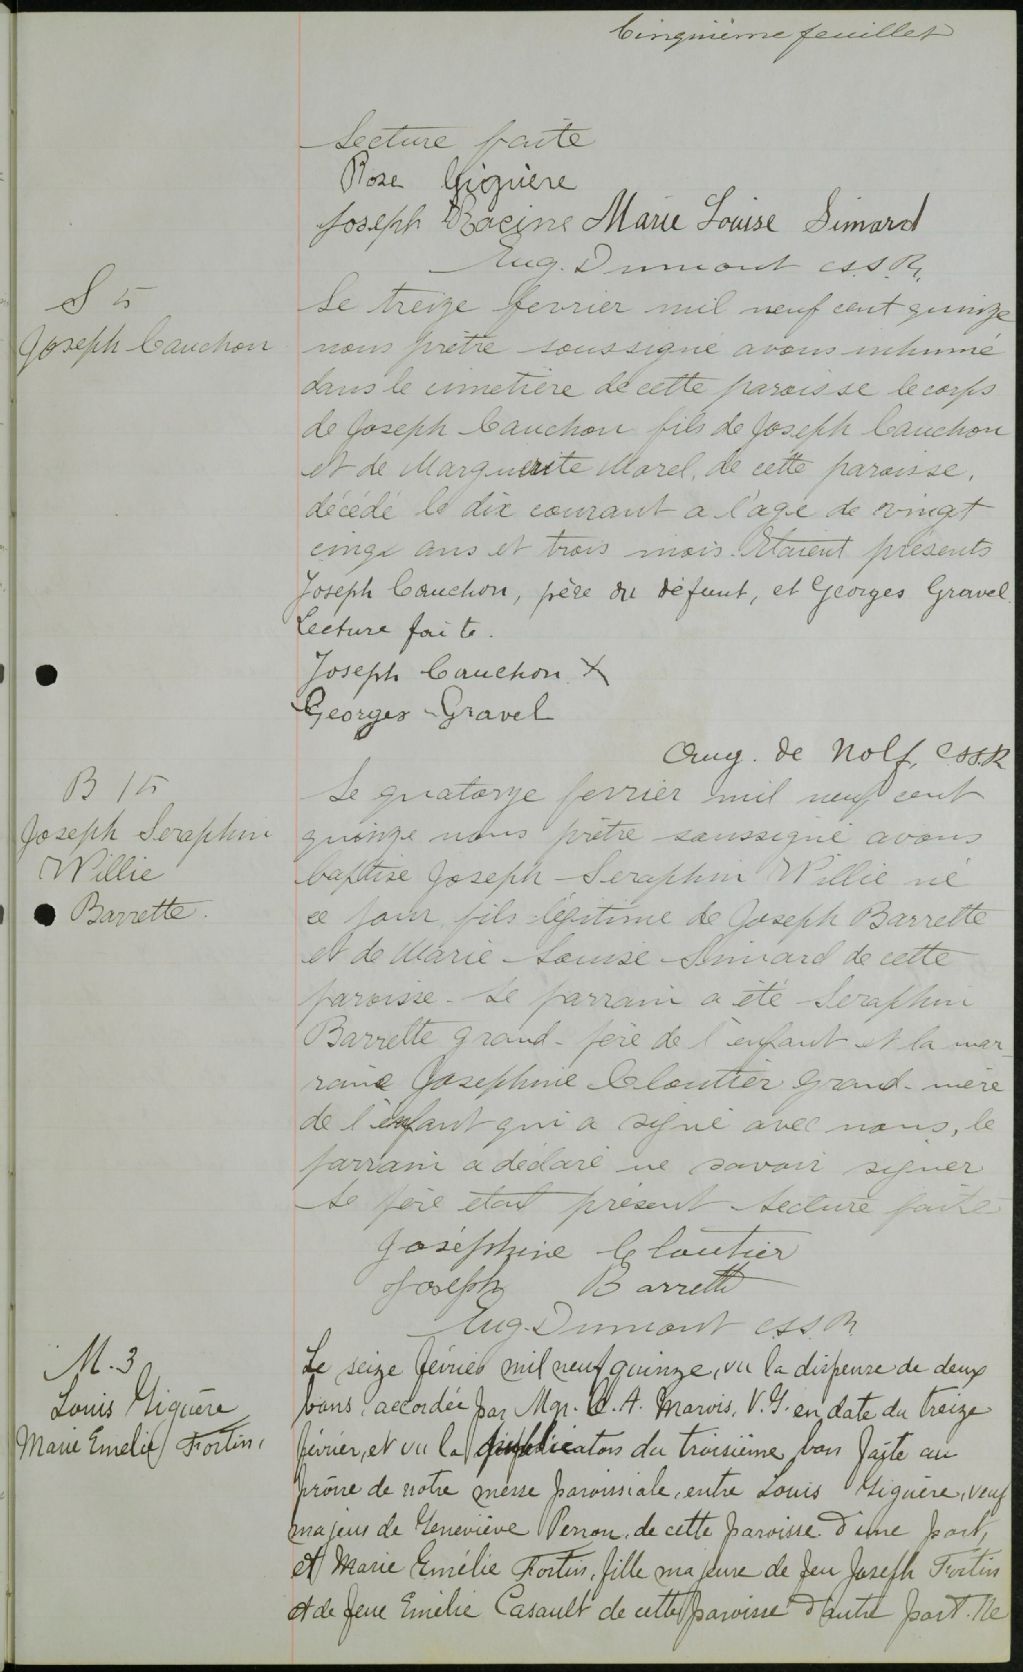 Cinquième feuillet
Lecture faite
Rose Giguère
Joseph Racine Marie Louise Simard
Eug. Dumont C.S.S.R.
S 5
Joseph Cauchon
Le treize fevrier mil neuf cent quinze
nous prêtre soussigné avons inhumé
dans le cimetière de cette paroisse le corps
de Joseph Cauchon fils de Joseph Cauchon
et de Marguerite Morel, de cette paroisse,
décédé le dix courant a l'age de vingt
cinq ans et trois mois. Etaient présents
Joseph Cauchon, père du défunt, et Georges Gravel.
Lecture faite.
Joseph Cauchon X
Georges Gravel
Aug. de Nolf, C.SS.R
B 15
Joseph Seraphin
Willie
Barrette.
Le quatorze fevrier mil neuf cent
quinze nous prêtre soussigné avons
baptisé Joseph Seraphin Willie né
ce jour, fils légitime de Joseph Barrette
et de Marie Louise Simard de cette
paroisse. Le parrain a été Seraphin
Barrette grand-père de l'enfant et la mar-
raine Josephine Cloutier grand-mère
de l'enfant qui a signé avec nous, le
parrain a déclaré ne savoir signer
Le père etait présent. Lecture faite
Joséphine Cloutier
Joseph Barrette
Eug. Dumont C.S.S.R.
M. 3
Louis Giguère
Marie Emélie Fortin.
Le seize février mil neuf quinze, vu la dispense de deux
bans, accordée par Mgr. C. A. Marois, V. G. en date du treize
février, et vu la publication du troisième ban faite au
prône de notre messe paroissiale, entre Louis Giguère, veuf
majeur de Geneviève Perron, de cette paroisse d'une part,
et Marie Emélie Fortin, fille majeure de feu Joseph Fortin
et de feue Emélie Casault de cette paroisse d'autre part. Ne